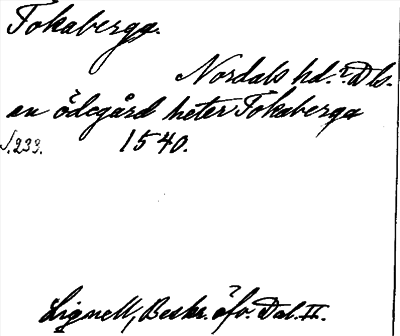 Tokaberga.
Nordals hd. Dls.
en ödegård heter Tokaberga
S. 233. 1540.
Lignell, Beskr. öfv. Dal. II.